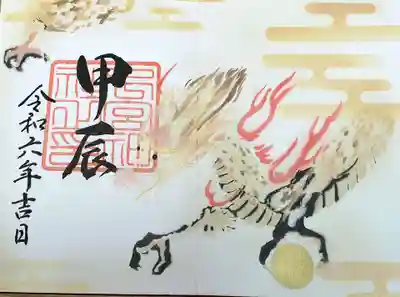 甲辰
令和六年吉日